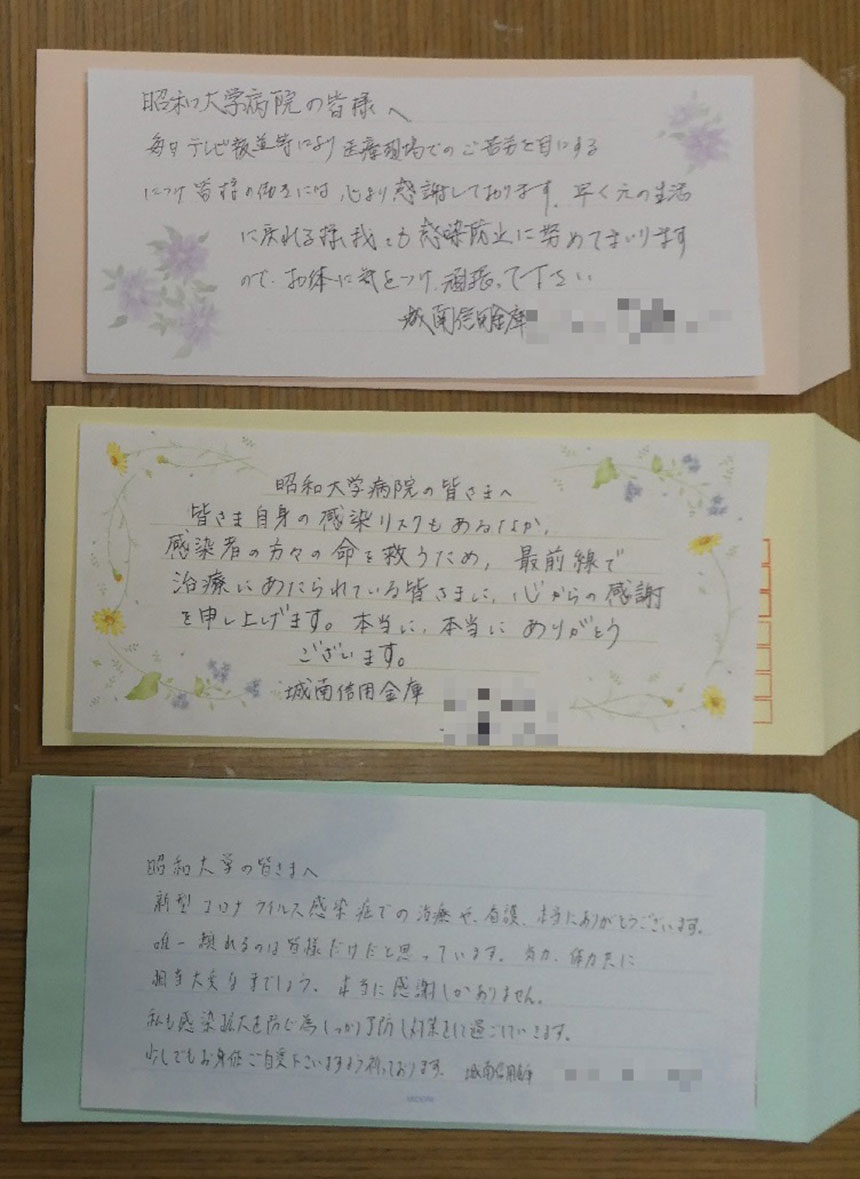 昭和大学病院の皆様へ
毎日テレビ報道等により医療現場でのご苦労を目にする
につけ皆様の働きには心より感謝しております。早く元の生活
に戻れる様、我々も感染防止に努めてまいります
ので、お体に気をつけ、頑張って下さい
城南信用金庫
昭和大学病院の皆さまへ
皆さま自身の感染リスクもあるなか、
感染者の方々の命を救うため、最前線で
治療にあたられている皆さまに、心からの感謝
を申し上げます。本当に、本当にありがとう
ございます。
城南信用金庫
昭和大学の皆さまへ
新型コロナウイルス感染症での治療や、看護、本当にありがとうございます。
唯一頼れるのは皆様だけだと思っています。気力、体力共に
相当大変な事でしょう。本当に感謝しかありません。
私も感染拡大を防ぐ為しっかり予防し対策をして過ごしていきます。
少しでもお身体ご自愛下さいますよう祈っております。城南信用金庫
MIDORI